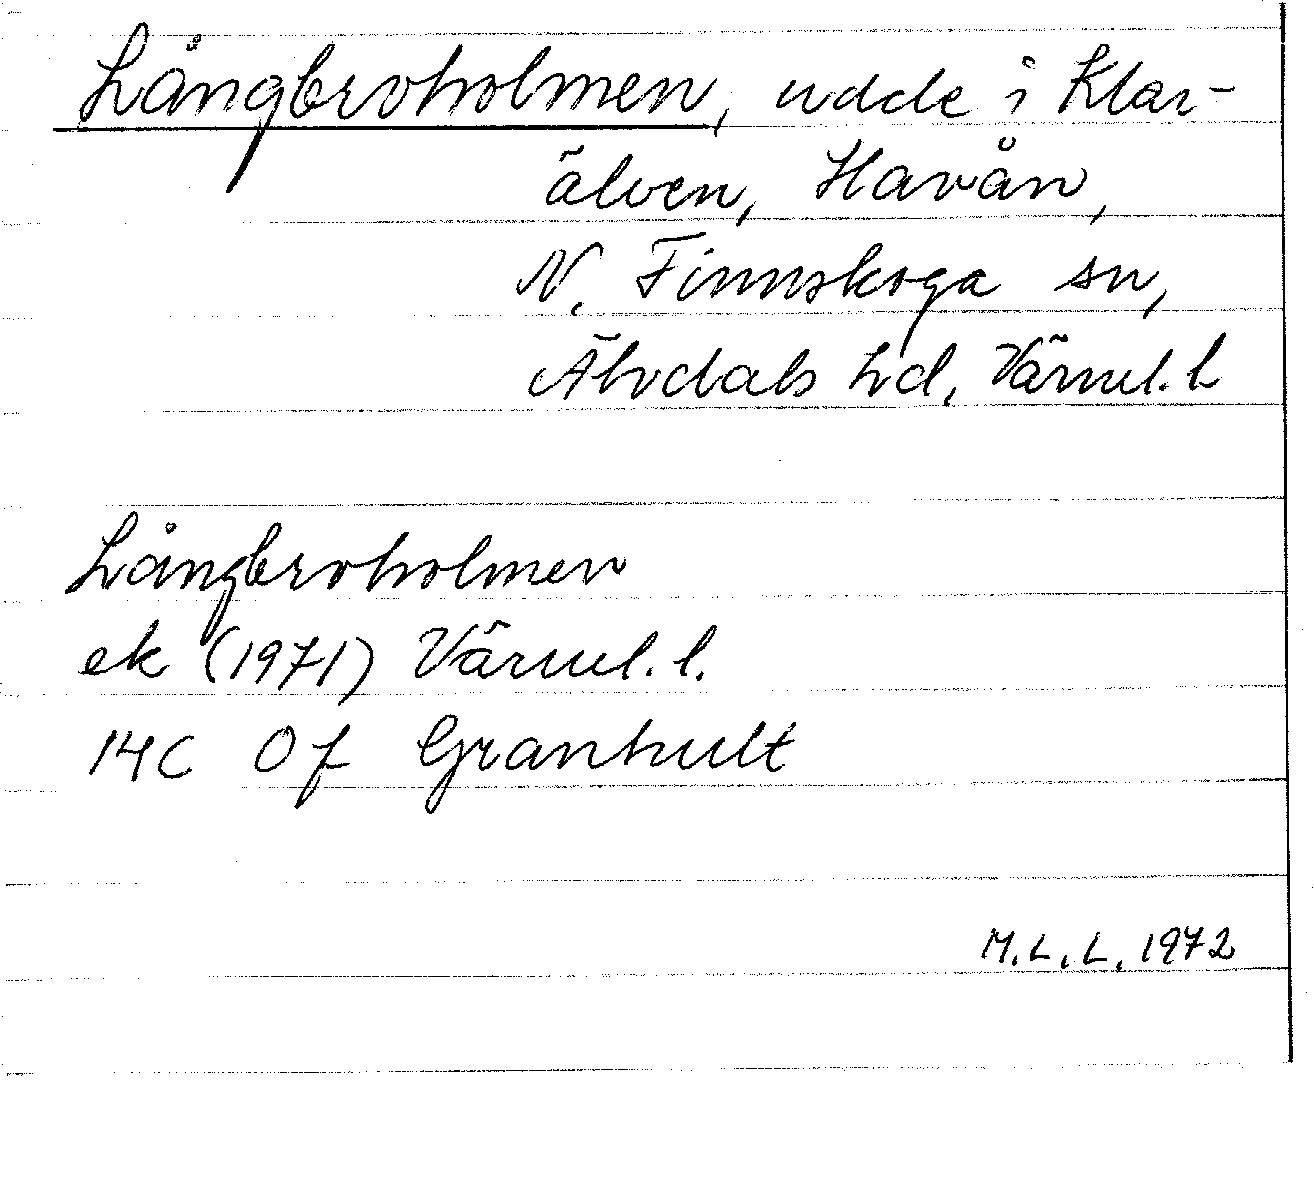 Långbroholmen, udde i Klar-
älven, Havån,
N. Finnskoga sn,
Älvdals hd, Värml. l
Långbroholmen
ek (1971) Värml. l.
14C Of Granhult
M.L.L. 1972